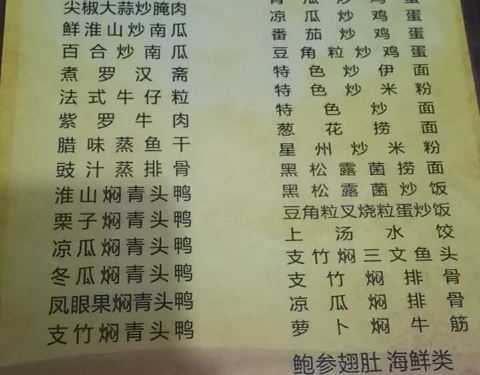 尖椒大蒜炒腌肉
鲜淮山炒南瓜
百合炒南瓜
煮罗汉斋
法式牛仔粒
紫罗牛肉
腊味蒸鱼干
豉汁蒸排骨
淮山焖青头鸭
栗子焖青头鸭
凉瓜焖青头鸭
冬瓜焖青头鸭
凤眼果焖青头鸭
支竹焖青头鸭
凉瓜炒鸡蛋
番茄炒鸡蛋
豆角粒炒鸡蛋
特色炒伊面
特色炒米粉
特色炒面
葱花捞面
星州炒米粉
黑松露菌捞面
黑松露菌炒饭
豆角粒叉烧粒蛋炒饭
上汤水饺
支竹焖三文鱼头
支竹焖排骨
凉瓜焖排骨
萝卜焖牛筋
鲍参翅肚 海鲜类